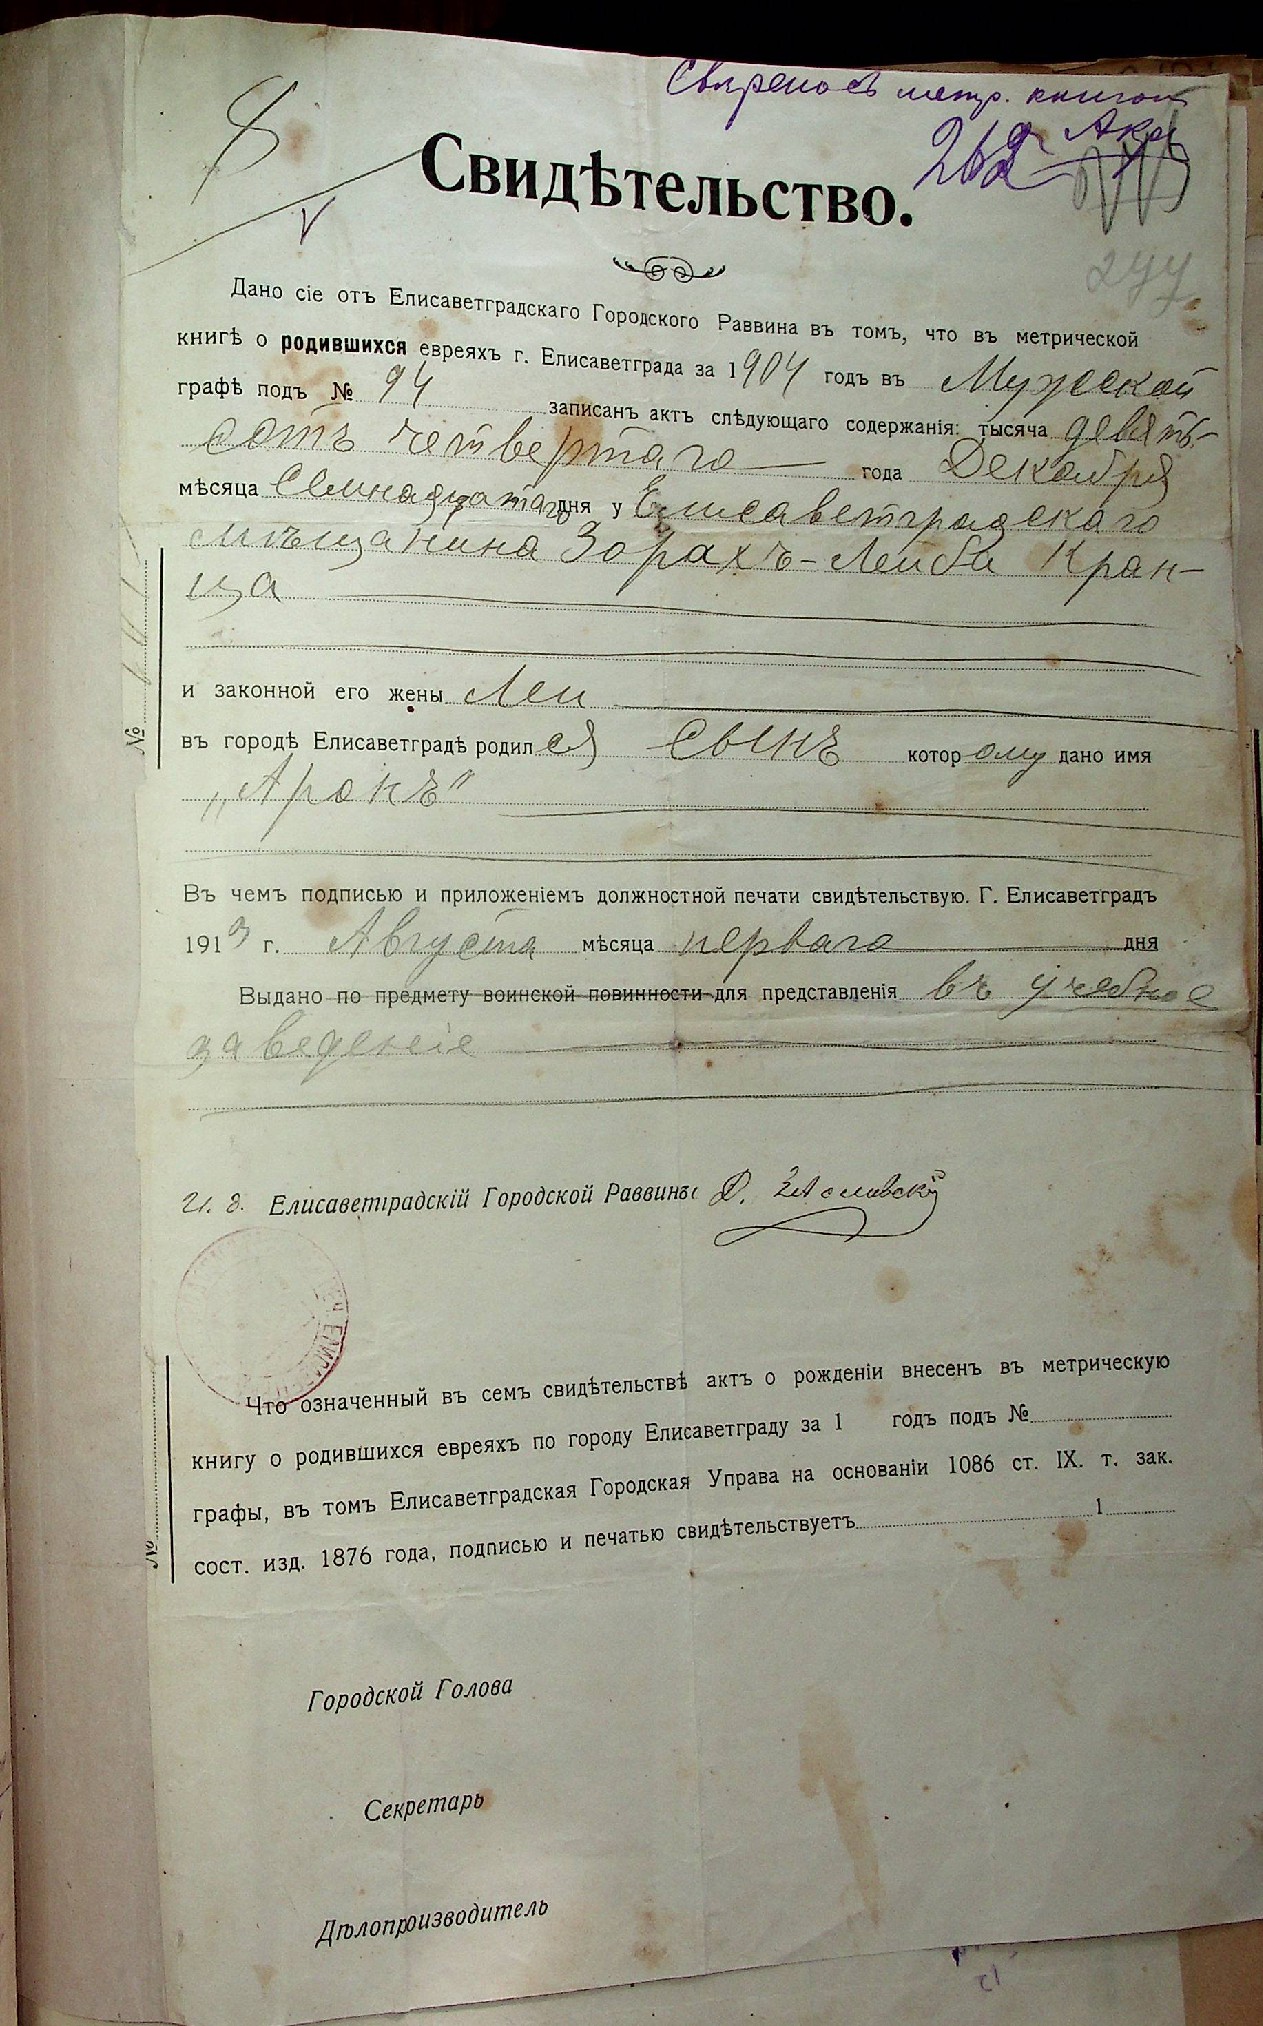 Свѣрено съ метр. книгой
8
Свидѣтельство.
277
Дано сіе отъ Елисаветградскаго Городского Раввина въ томъ, что въ метрической
книгѣ о родившихся евреяхъ г. Елисаветграда за 1904 годъ въ Мужской
графѣ подъ № 94 записанъ актъ слѣдующаго содержанія: тысяча девять-
сотъ четвертаго года Декабря
мѣсяца Семнадцатаго дня у Елисаветградскаго
мѣщанина Зорахъ-Лейба Кран-
ца
и законной его жены Леи
въ городѣ Елисаветградѣ родился сынъ которому дано имя
„Аронъ"
Въ чемъ подписью и приложеніемъ должностной печати свидѣтельствую. Г. Елисаветградъ
1913 г. Августа мѣсяца перваго дня
Выдано по предмету воинской повинности для представленія въ учебное
заведеніе
И. д. Елисаветградскій Городской Раввинъ Д. Заславскій
Что означенный въ семъ свидѣтельствѣ актъ о рожденіи внесенъ въ метрическую
книгу о родившихся евреяхъ по городу Елисаветграду за 1 годъ подъ №
графы, въ томъ Елисаветградская Городская Управа на основаніи 1086 ст. IX. т. зак.
сост. изд. 1876 года, подписью и печатью свидѣтельствуетъ 1
Городской Голова
Секретарь
Дѣлопроизводитель
№
№